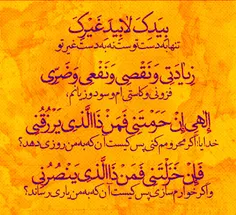 بِیَدِکَ لابِیَدِ غَیْرِکَ
تنها به دست توست نه به دست غیر تو
زِیادَتی وَ نَقْصی وَ نَفْعی وَ ضَرّی
فزونی و کاستی‌ام و سود و زیانم،
اِلٰهی اِنْ حَرَمْتَنی فَمَنْ ذَا الَّذی یَرْزُقُنی
خدایا، اگر محرومم کنی پس کیست آن که به من روزی دهد؟
فَاِنْ خَذَلْتَنی فَمَنْ ذَا الَّذی یَنْصُرُنی
و اگر خوارم سازی پس کیست آن که به من یاری رساند؟